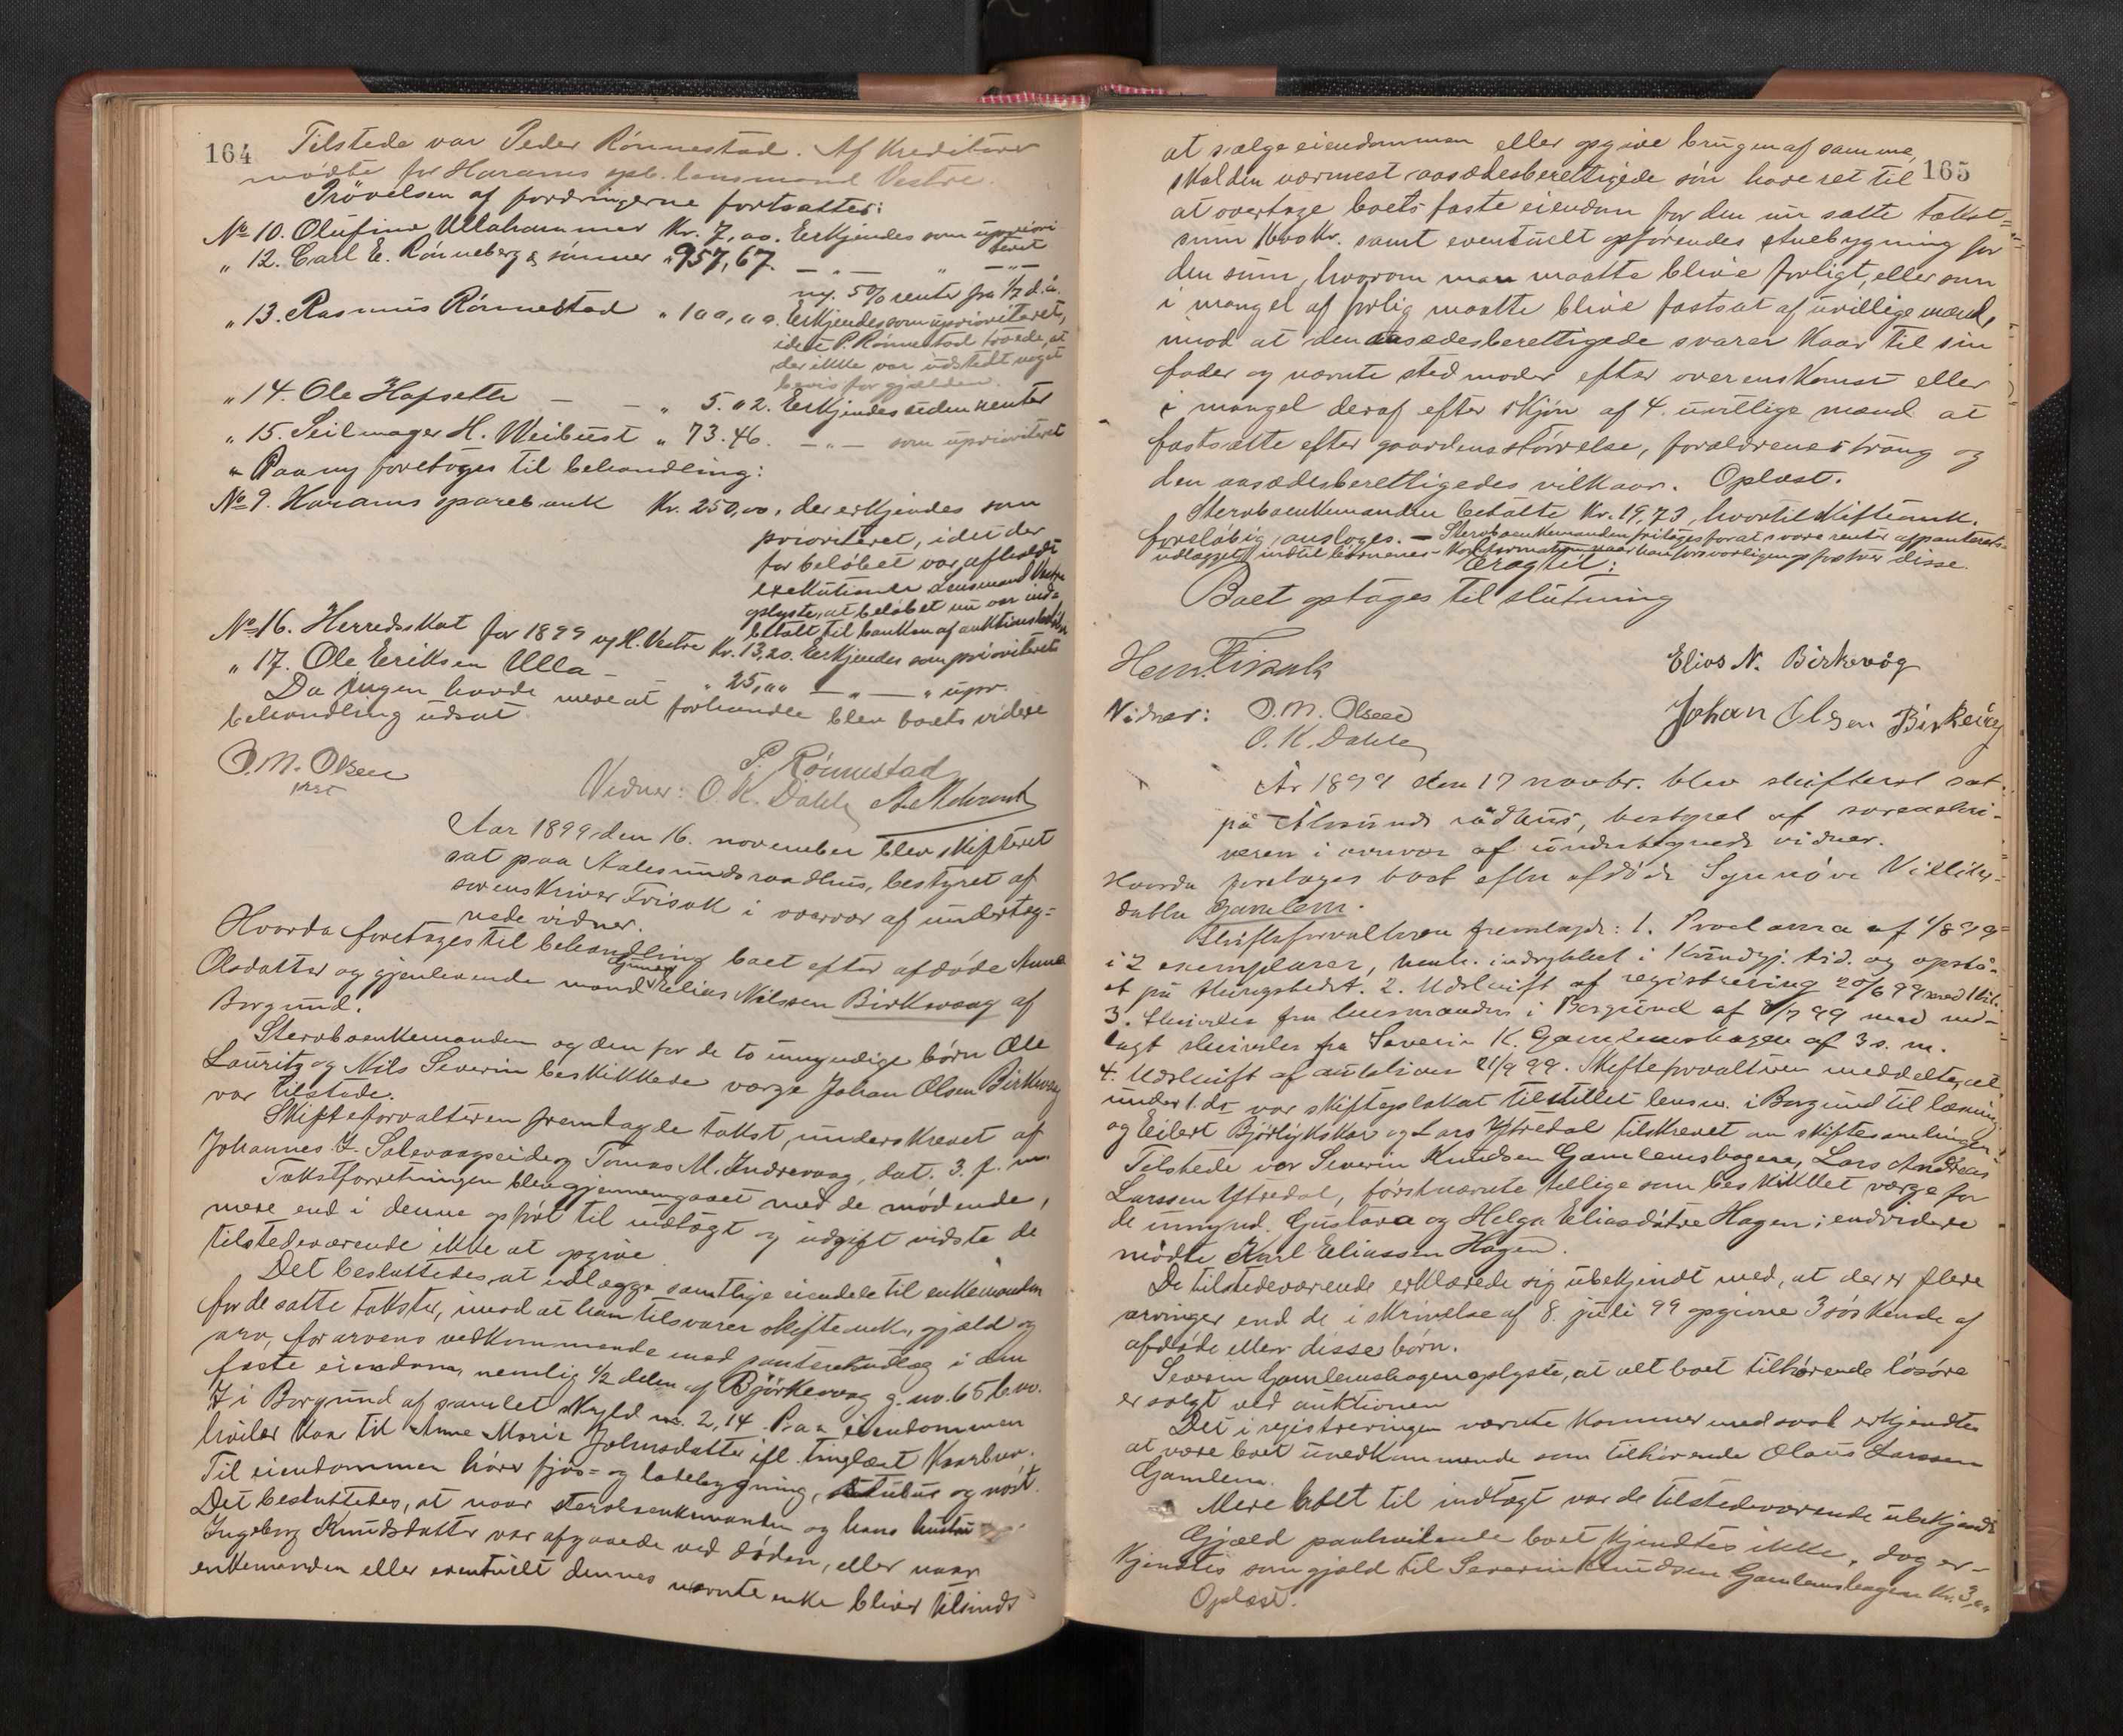 164
Tilstede var Peder Rönnestad. Af Kreditorer
mödte for Harams spb. lensmand Vestre.
Prövelsen af fordringerne fortsattes:
No 10. Olufine Ullahammer Kr. 7,00. Erkjendes som upriori
teret
" 12. Carl E. Rönneberg & sönner " 957,67. — " — " — " —
ny. 5% renter fra 1/7 d.å.
" 13. Rasmus Rönnestad " 100,00. Erkjendes som uprioriteret,
idet P. Rönnestad troede, at
der ikke var udstedt noget
bevis for gjælden.
" 14. Ole Hofseth — — " 5.02. Erkjendes uden renter
" 15. Seilmager H. Weibust " 73.46. — " — som uprioriteret
" Paa ny foretoges til behandling:
No 9. Harams sparebank Kr. 250,00, der erkjendes som
prioriteret, idet der
for belöbet var afholdt
exekutioner. Lensmand Vestre
oplyste, at beløbet nu var ind-
betalt til banken af auktionsbelöb
No 16. Herredsskat for 1899 v/ H. Vestre Kr. 13,20. Erkjendes som prioriteret
" 17. Ole Eriksen Ulla — " 25,00 — " — " upr.
Da ingen havde mere at forhandle blev boets videre
behandling udsat.
O. M. Olsen
P. Rönnestad
Vidner: O. K. Dahle
Aar 1899 den 16. november blev skifteret
sat paa Aalesunds raadhus, bestyret af
sorenskriver Frisak i overvær af underteg=
nede vidner.
Hvorda foretoges til behandling boet efter afdöde Anne
Olsdatter og gjenlevende mand Elias Nilssen Birkevaag af
Borgund.
Stervboenkemanden og den for de to umyndige börn Ole
Lauritz og Nils Severin beskikkede værge Johan Olsen Birkevaag
var tilstede.
Skifteforvalteren fremlagde takst, underskrevet af
Johannes J. Solevaagseide og Tomas M. Indrevaag, dat. 3. f. m.
Takstforretningen blev gjennemgaaet med de mödende,
mere end i denne opfört til indtægt og udgift vidste de
tilstedeværende ikke at opgive
Det besluttedes, at udlægge samtlige eiendele til enkemanden
for de satte takster, imod at han tilsvarer skifteomk., gjæld og
arv, for arvens vedkommende med panteretsudlæg i den
faste eiendom, nemlig 1/2 delen af Björkevaag g. no. 65 b. no.
7 i Borgund af samlet Skyld m. 2,14. Paa eiendommen
hviler Kaar til Anne Marie Johnsdatter ifl. tinglæst Kaarbrev.
Til eiendommen hörer fjös- og ladebygning, stabur og nöst.
Det besluttedes, at naar stervboenkemanden og hans hustru
Ingeborg Knudsdatter var afgaaede ved döden, eller naar
enkemanden eller eventuelt dennes nævnte enke bliver tilsinds
165
at sælge eiendommen eller opgive brugen af samme,
skal den nærmest aasædesberettigede sön have ret til
at overtage boets faste eiendom for den nu satte takst=
sum 1600 Kr. samt eventuelt opförendes stuebygning for
den sum, hvorom man maatte blive forligt, eller som
i mangel af forlig maatte blive fastsat af uvillige mænd,
mod at den aasædesberettigede svarer Kaar til sin
fader og nævnte stedmoder efter overenskomst eller
i mangel deraf efter skjön af 4. uvillige mænd at
fastsætte efter gaardens störrelse, forældrenes trang og
den aasædesberettigedes vilkaar. Oplæst.
Stervboenkemanden betalte Kr. 19,73, hvortil skifteomk.
foreløbig ansloges. — Stervboenkemanden fritages for at svare renter af panterets-
udlægget indtil börnenes Konfirmation naar han forsvarligen opfostrer disse.
Eragtet:
Boet optages til slutning
Hen. Frisak
Elias N. Birkevåg
Vidner: O. M. Olsen
Johan Olsen Birkevåg
O. K. Dahle
År 1899 den 17 novbr. blev skifteret sat
på Ålesunds rådhus, bestyret af sorenskri-
veren i overvær af undertegnede vidner.
Hvorda foretoges boet efter afdöde Synnöve Nilsdatter
Gamlem.
Skifteforvalteren fremlagde: 1. Proclama af 1/8 99
i 2 exemplarer, henh. indrykket i Kundgj. tid. og opslå-
et på thingstedet. 2. Udskrift af registrering 20/6 99 med 1 bil.
3. Skrivelse fra lensmanden i Borgund af 8/7 99 med ved-
lagt skrivelse fra Severin K. Gamlemshagen af 3 s. m.
4. Udskrift af auktion 21/9 99. Skifteforvalteren meddelte, at
under 1. ds var skifteplakat tilstillet lensm. i Borgund til læsning
og Eilert Björlykskar og Lars Ytredal tilskrevet om skiftesamlingen.
Tilstede var Severin Knudsen Gamlemshagen, Lars Andreas
Larssen Ytredal, förstnævnte tillige som beskikket værge for
de umynd. Gustava og Helga Eliasdötre Hagen; endvidere
mödte Karl Eliassen Hagen.
De tilstedeværende erklærede sig ubekjendt med, at der er flere
arvinger end de i skrivelse af 8. juli 99 opgivne 3 söskende af
afdöde eller disses börn.
Severin Gamlemshagen oplyste, at alt boet tilhörende lösöre
er solgt ved auktionen
Det i registreringen nævnte Kammer med sval erkjendtes
at være boet uvedkommende som tilhörende Olaus Larssen
Gamlem.
Mere boet til indtægt var de tilstedeværende ubekjendt
Gjæld paahvilende boet kjendtes ikke, dog er-
kjendtes som gjæld til Severin Knudsen Gamlemshagen Kr. 3,00
Oplæst.